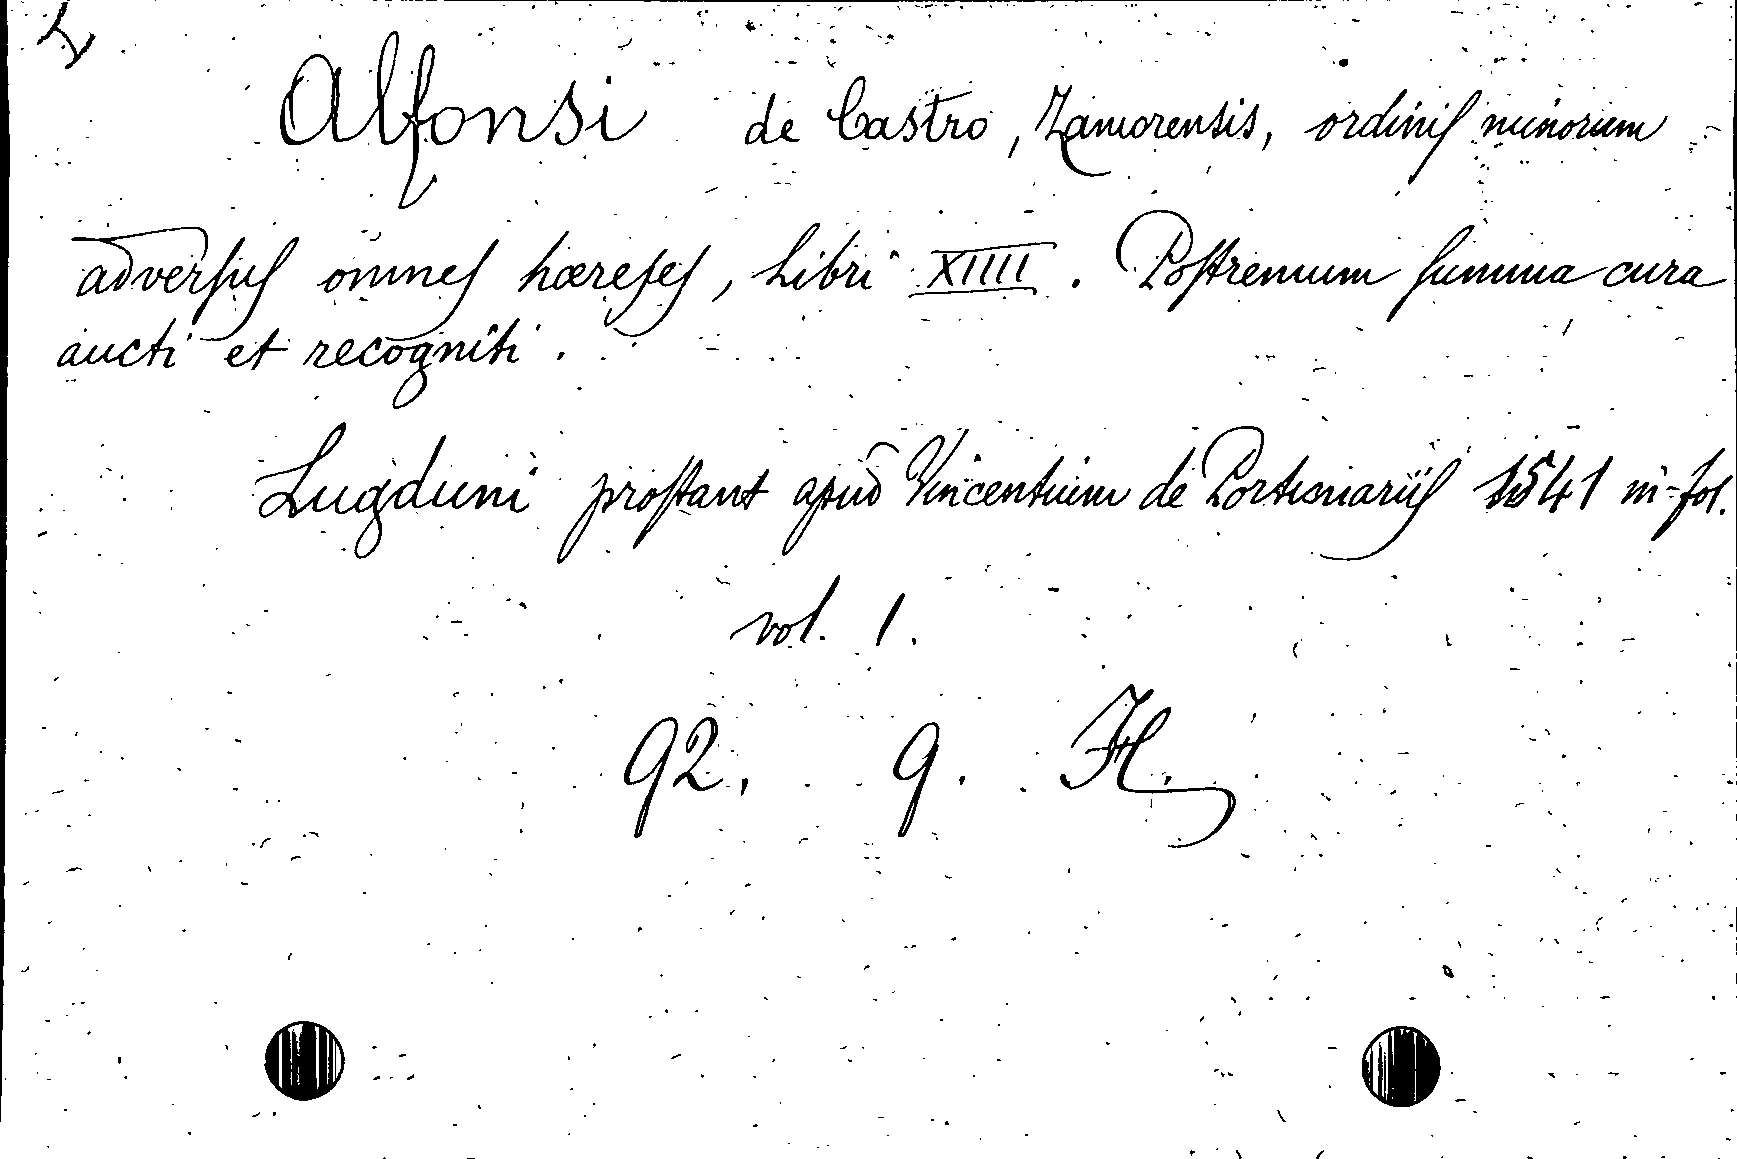 Alfonsi de Castro, Zamorensis, ordinis minorum
adversus omnes hæreses, Libri XIIII. Postremum summa cura
aucti et recogniti.
Lugduni prostant apud Vincentium de Portonariis 1541 in-fol.
vol. 1.
92. 9. H.